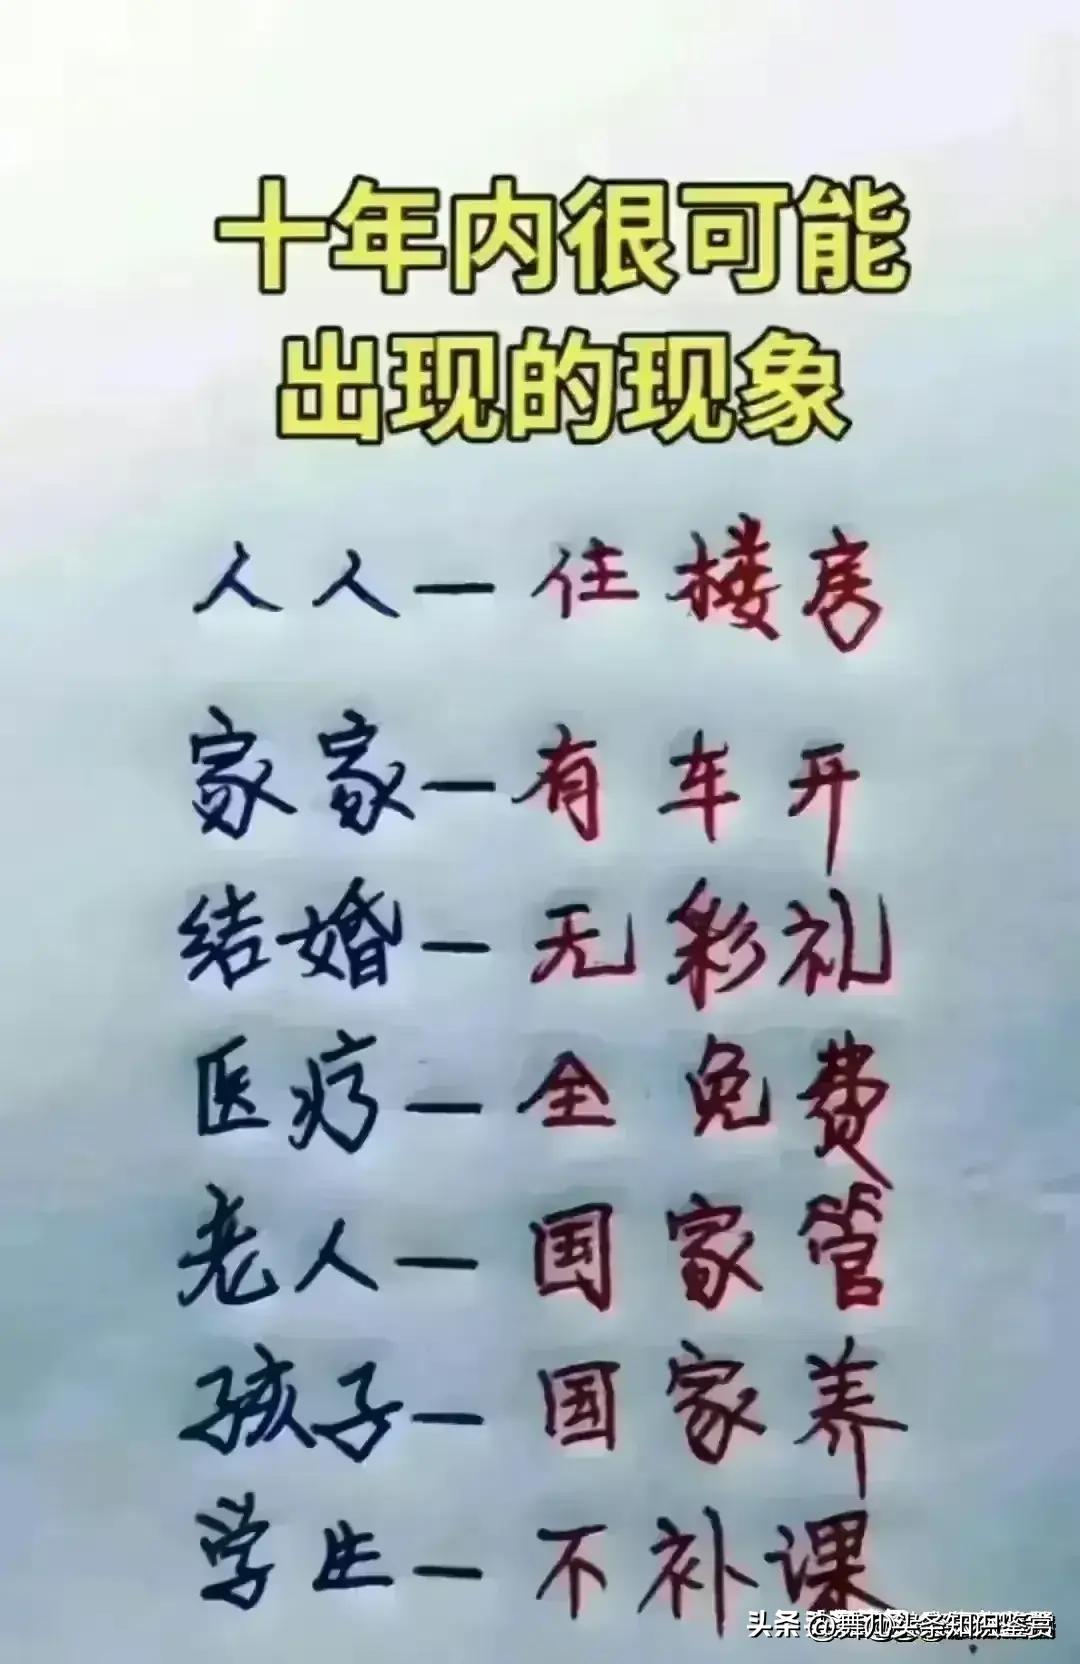 十年内很可能
出现的现象
人人—住楼房
家家—有车开
结婚—无彩礼
医疗—全免费
老人—国家管
孩子—国家养
学生—不补课
头条